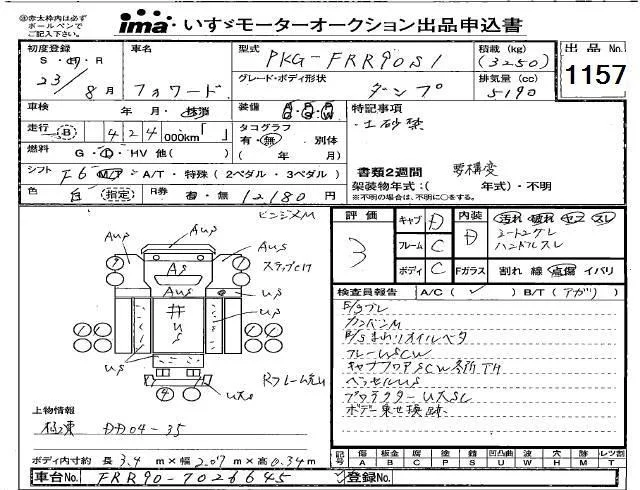 ㊟赤太枠内は必ず
ボールペンで
ご記入下さい。
ima・いすゞモーターオークション出品申込書
初度登録
S・H・R
23/8月
車名
フォワード
型式
PKG-FRR90S1
グレード・ボディ形状
ダンプ
積載(kg)
(3250)
排気量(cc)
5190
出品No.
1157
車検 年 月・抹消
装備 A/C P/S P/W
特記事項
・土砂禁
走行 B 424 000km「 」
タコグラフ
有・無 別体
( 年 月)
燃料 G・L・HV 他( )
シフト F6 M/T・A/T・特殊(2ペダル・3ペダル)
書類2週間 要構変
架装物年式:( 年式)・不明
※不明の場合は、不明に○をする。
色 白(指定) R券 有・無 12180円
評価
3
キャブ D
フレーム C
ボディ C
内装 D
汚れ 破れ ヤブ スレ
シートコゲレ
ハンドルスレ
Fガラス 割れ 線 点傷 イバリ
検査員報告 A/C(✓) B/T(アガリ)
E/gブレ
カンバンM
E/gまわりオイルベタ
フレームSCW
キャブフロアSCW各所TH
ベッセルUS
プロテクターU大SC
ボデー乗せ換跡
AUS
AUS
AUS
AS
AUS
US
US
US
井
U大S
ステップ凹
4
上物情報
極東 DD04-35
ボディ内寸約 長3.4m×幅2.07m×高0.34m
記号 傷A 板金B 腐C 塗P 錆S 凹凸曲U 波W 穴H 跡M 飛T レツ割
車台No. FRR90-7026645
登録No.